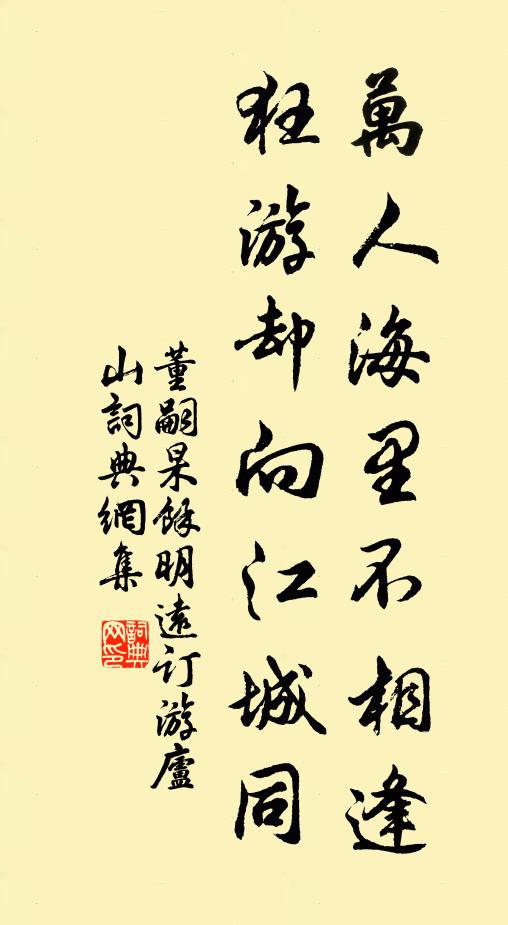 萬人海里不相逢
狂游却向江城同
董嗣杲餘明遠订游廬
山詞典網集
詞典网印